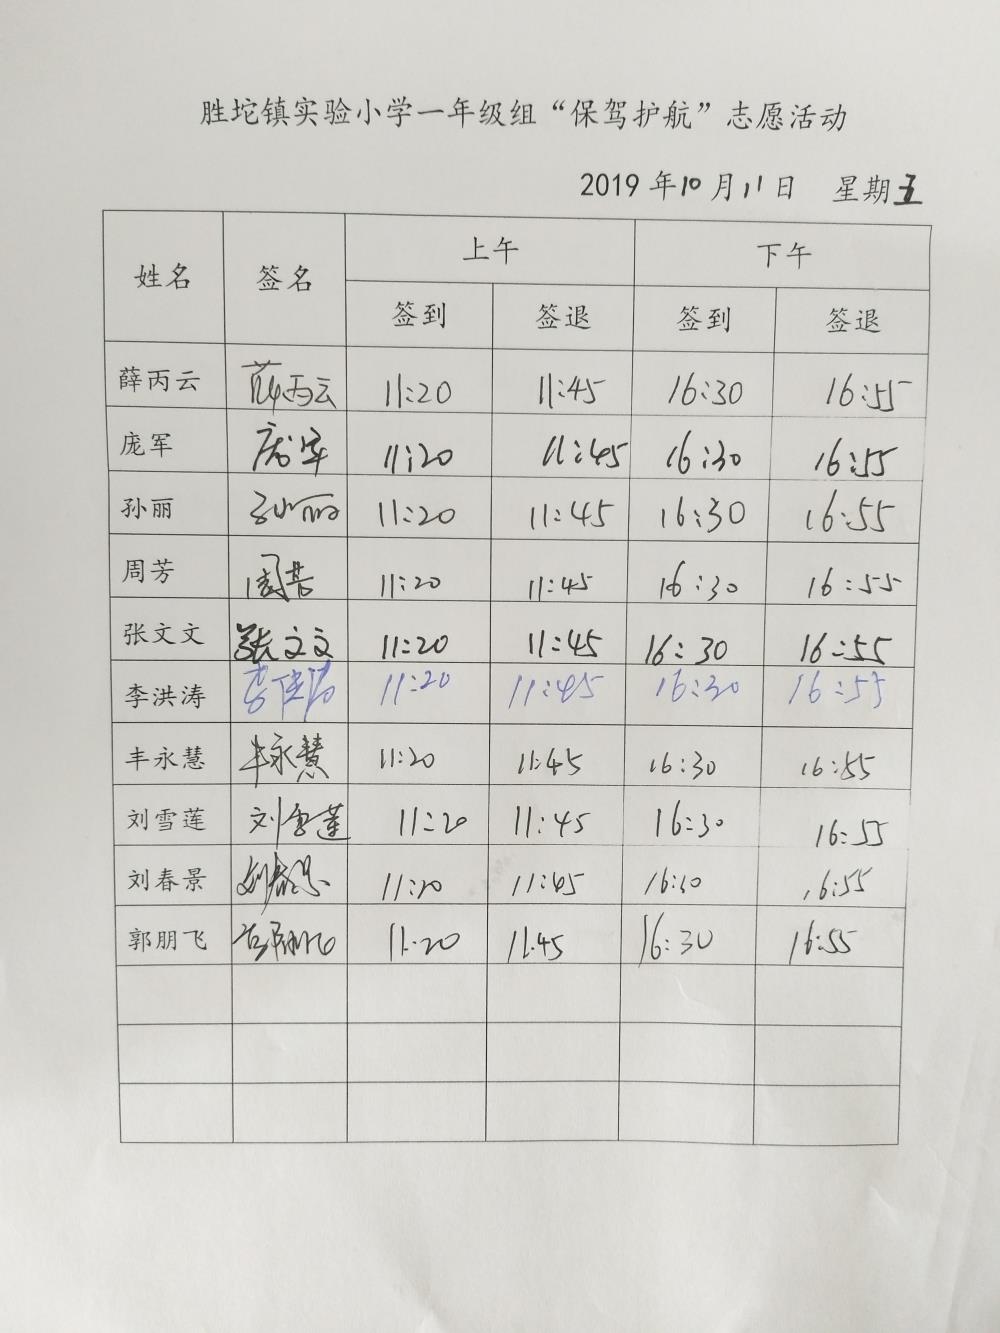 胜坨镇实验小学一年级组“保驾护航”志愿活动
2019年10月11日 星期五
姓名 签名 上午 下午
签到 签退 签到 签退
薛丙云 薛丙云 11:20 11:45 16:30 16:55
庞军 庞军 11:20 11:45 16:30 16:55
孙丽 孙丽 11:20 11:45 16:30 16:55
周芳 周芳 11:20 11:45 16:30 16:55
张文文 张文文 11:20 11:45 16:30 16:55
李洪涛 李洪涛 11:20 11:45 16:30 16:55
丰永慧 丰永慧 11:20 11:45 16:30 16:55
刘雪莲 刘雪莲 11:20 11:45 16:30 16:55
刘春景 刘春景 11:20 11:45 16:30 16:55
郭朋飞 郭朋飞 11:20 11:45 16:30 16:55